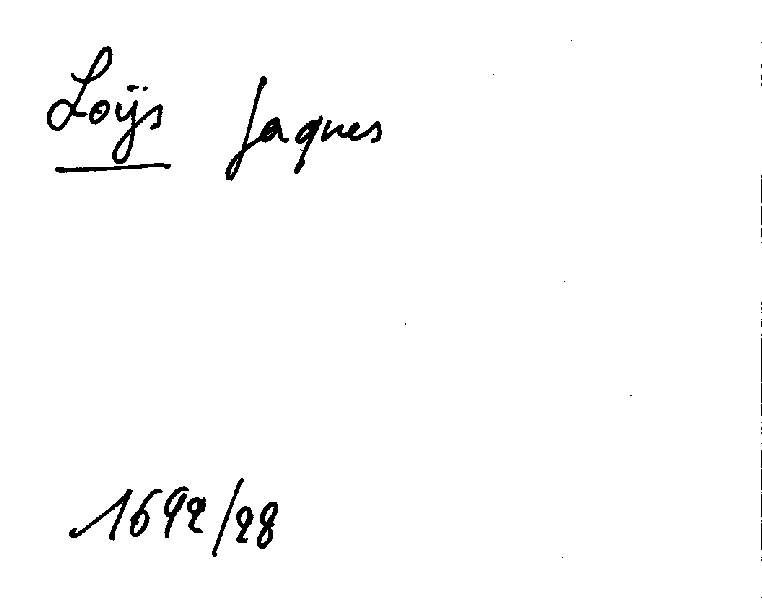 Loÿs Jaques
1692/28